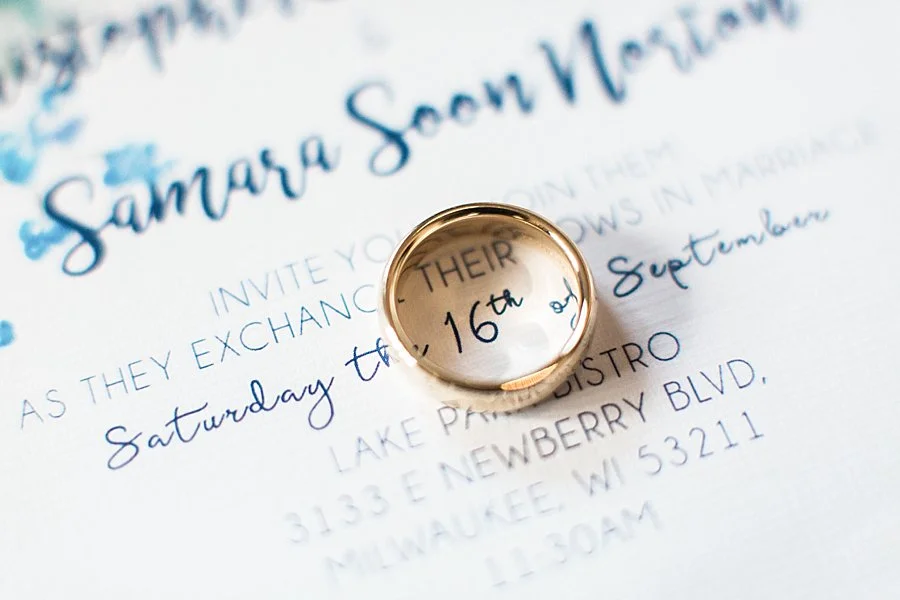 Samara Soon Norton
INVITE YOU JOIN THEM
AS THEY EXCHANGE THEIR VOWS IN MARRIAGE
Saturday the 16th of September
LAKE PARK BISTRO
3133 E NEWBERRY BLVD,
MILWAUKEE, WI 53211
11:30AM